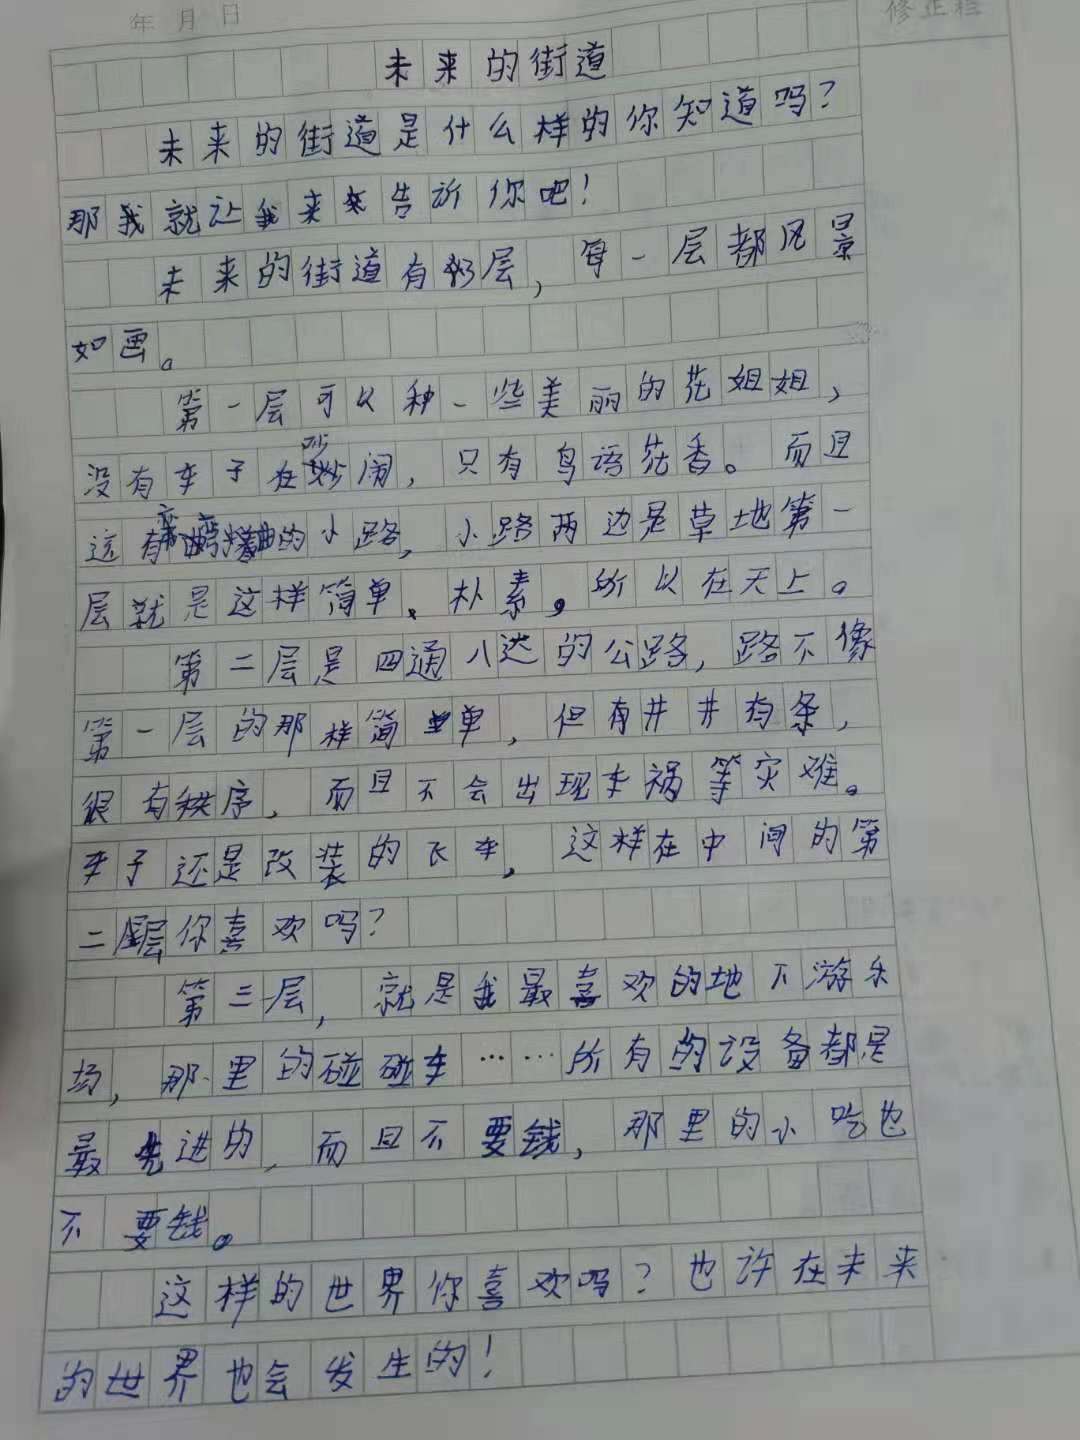 年 月 日
修正栏
未来的街道
未来的街道是什么样的你知道吗？
那我就让我来告诉你吧！
未来的街道有层，每一层都风景
如画。
第一层可以种一些美丽的花姐姐，
没有车子在吵闹，只有鸟语花香。而且
这有弯弯曲曲的小路，小路两边是草地第一
层就是这样简单、朴素。所以在天上。
第二层是四通八达的公路，路不像
第一层的那样简单，但有井井有条，
很有秩序，而且不会出现车祸等灾难。
车子还是改装的飞车，这样在中间的第
二层你喜欢吗？
第三层，就是我最喜欢的地下游乐
场，那里的碰碰车……所有的设备都是
最先进的，而且不要钱，那里的小吃也
不要钱。
这样的世界你喜欢吗？也许在未来
的世界也会发生的！